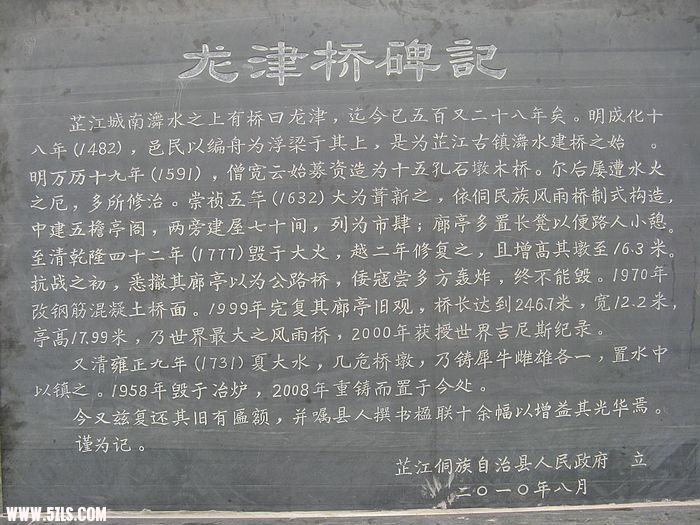 龙津桥碑記
芷江城南㵲水之上有桥曰龙津，迄今已五百又二十八年矣。明成化十
八年(1482)，邑民以编舟为浮梁于其上，是为芷江古镇㵲水建桥之始。
明万历十九年(1591)，僧宽云始募资造为十五孔石墩木桥。尔后屡遭水火
之厄，多所修治。崇祯五年(1632)大为葺新之，依侗民族风雨桥制式构造，
中建五檐亭阁，两旁建屋七十间，列为市肆；廊亭多置长凳以便路人小憩。
至清乾隆四十二年(1777)毁于大火，越二年修复之，且增高其墩至16.3米。
抗战之初，悉撤其廊亭以为公路桥，倭寇尝多方轰炸，终不能毁。1970年
改钢筋混凝土桥面。1999年完复其廊亭旧观，桥长达到246.7米，宽12.2米，
亭高17.99米，乃世界最大之风雨桥，2000年获授世界吉尼斯纪录。
又清雍正九年(1731)夏大水，几危桥墩，乃铸犀牛雌雄各一，置水中
以镇之。1958年毁于冶炉，2008年重铸而置于今处。
今又兹复还其旧有匾额，并嘱县人撰书楹联十余幅以增益其光华焉。
谨为记。
芷江侗族自治县人民政府 立
二〇一〇年八月
WWW.5ILS.COM